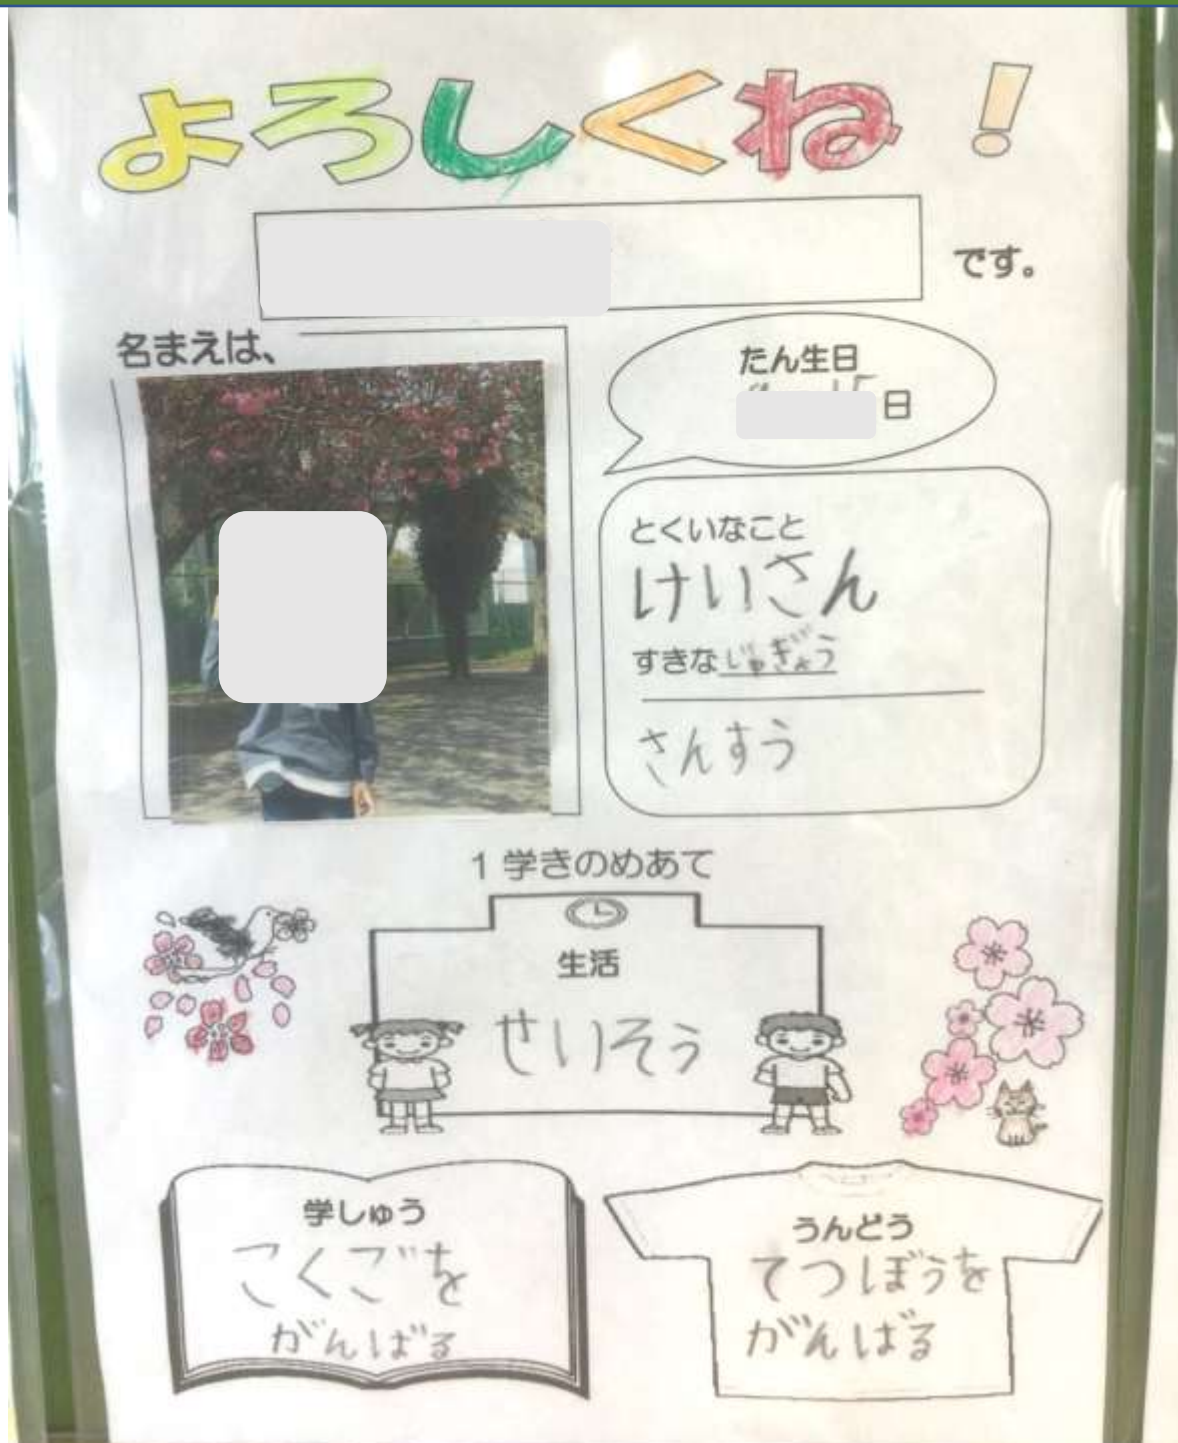 よろしくね!
です。
名まえは、
たん生日
日
とくいなこと
けいさん
すきなじゅぎょう
さんすう
1学きのめあて
生活
せいそう
学しゅう
こくごを
がんばる
うんどう
てつぼうを
がんばる